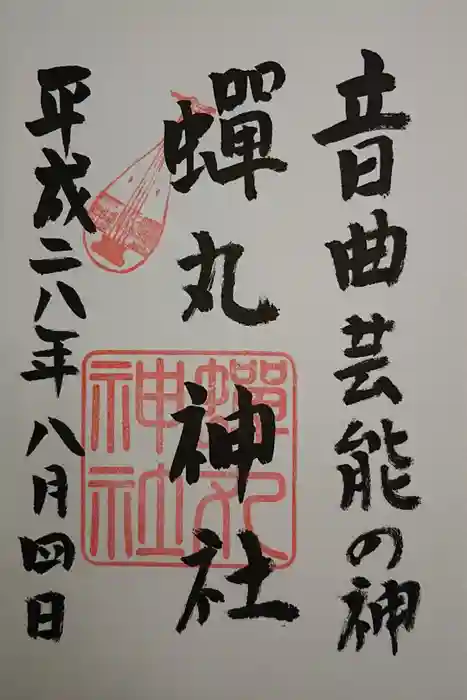 音曲芸能の神
蟬丸神社
蟬丸
神社
平成二八年八月四日